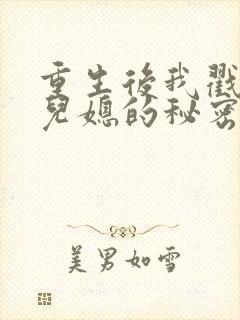 重生後我戳
兒媳的秘密
美男如雪